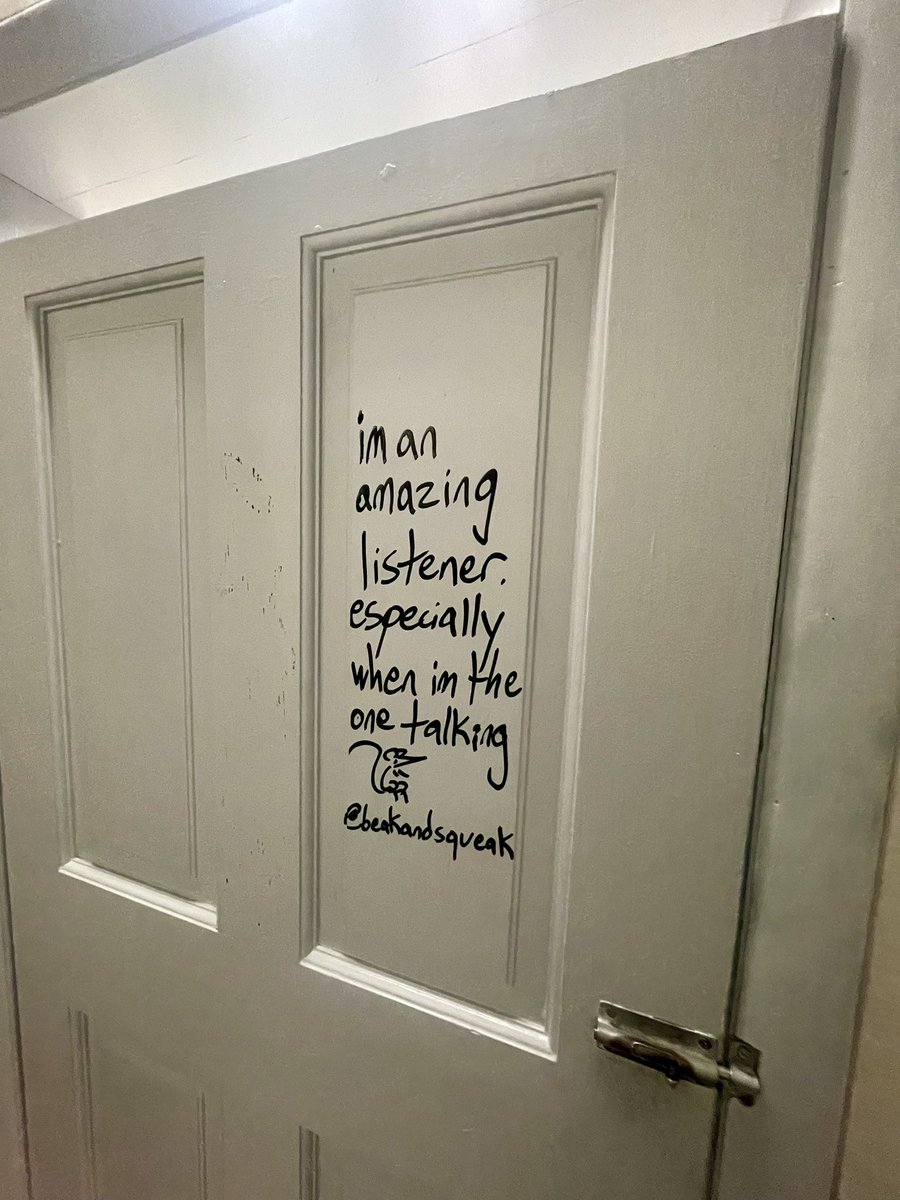 im an
amazing
listener.
especially
when im the
one talking
@beakandsqueak